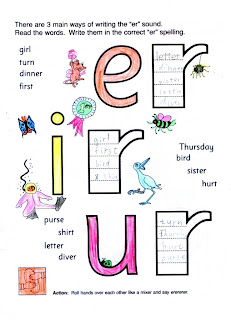 There are 3 main ways of writing the "er" sound.
Read the words. Write them in the correct "er" spelling.
girl
turn
dinner
first
er
letter
dinner
sister
ir
girl
first
bird
shirt
Thursday
bird
sister
hurt
purse
shirt
letter
diver
ur
turn
hurt
purse
Action: Roll hands over each other like a mixer and say ererer.